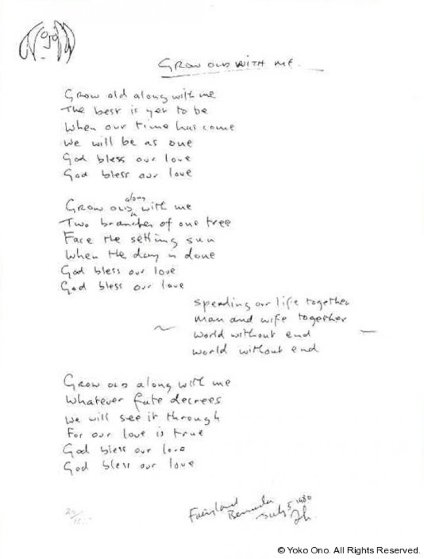 GROW OLD WITH ME
Grow old along with me
The best is yet to be
When our time has come
We will be as one
God bless our love
God bless our love
Grow old along with me
Two branches of one tree
Face the setting sun
When the day is done
God bless our love
God bless our love
spending our life together
man and wife together
world without end
world without end
Grow old along with me
Whatever fate decrees
We will see it through
For our love is true
God bless our love
God bless our love
Fairyland
Bermuda
July 5 1980
© Yoko Ono. All Rights Reserved.